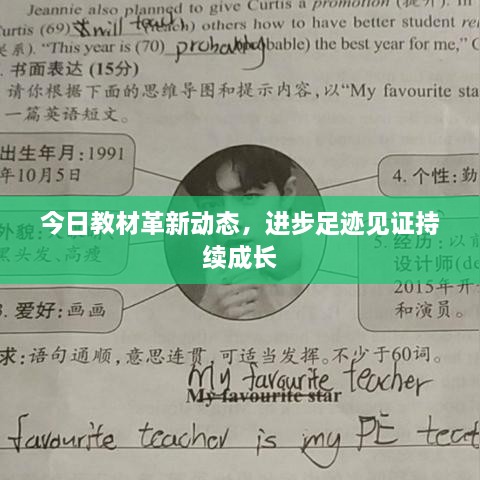 Jeannie also planned to give Curtis a promotion (提升). In
Curtis (69) will teach (teach) others how to have better student rel
关系). "This year is (70) probably (probable) the best year for me," C
. 书面表达 (15分)
请你根据下面的思维导图和提示内容,以"My favourite sta
一篇英语短文。
出生年月:1991
年10月5日
4. 个性:勤
今日教材革新动态，进步足迹见证持
续成长
外貌:
黑头发、高瘦
5. 经历:以前
设计师(de
2015年开
和演员。
3. 爱好:画画
求:语句通顺,意思连贯,可适当发挥。不少于60词。
My favourite teacher
My favourite star
favourite teacher is my PE teac